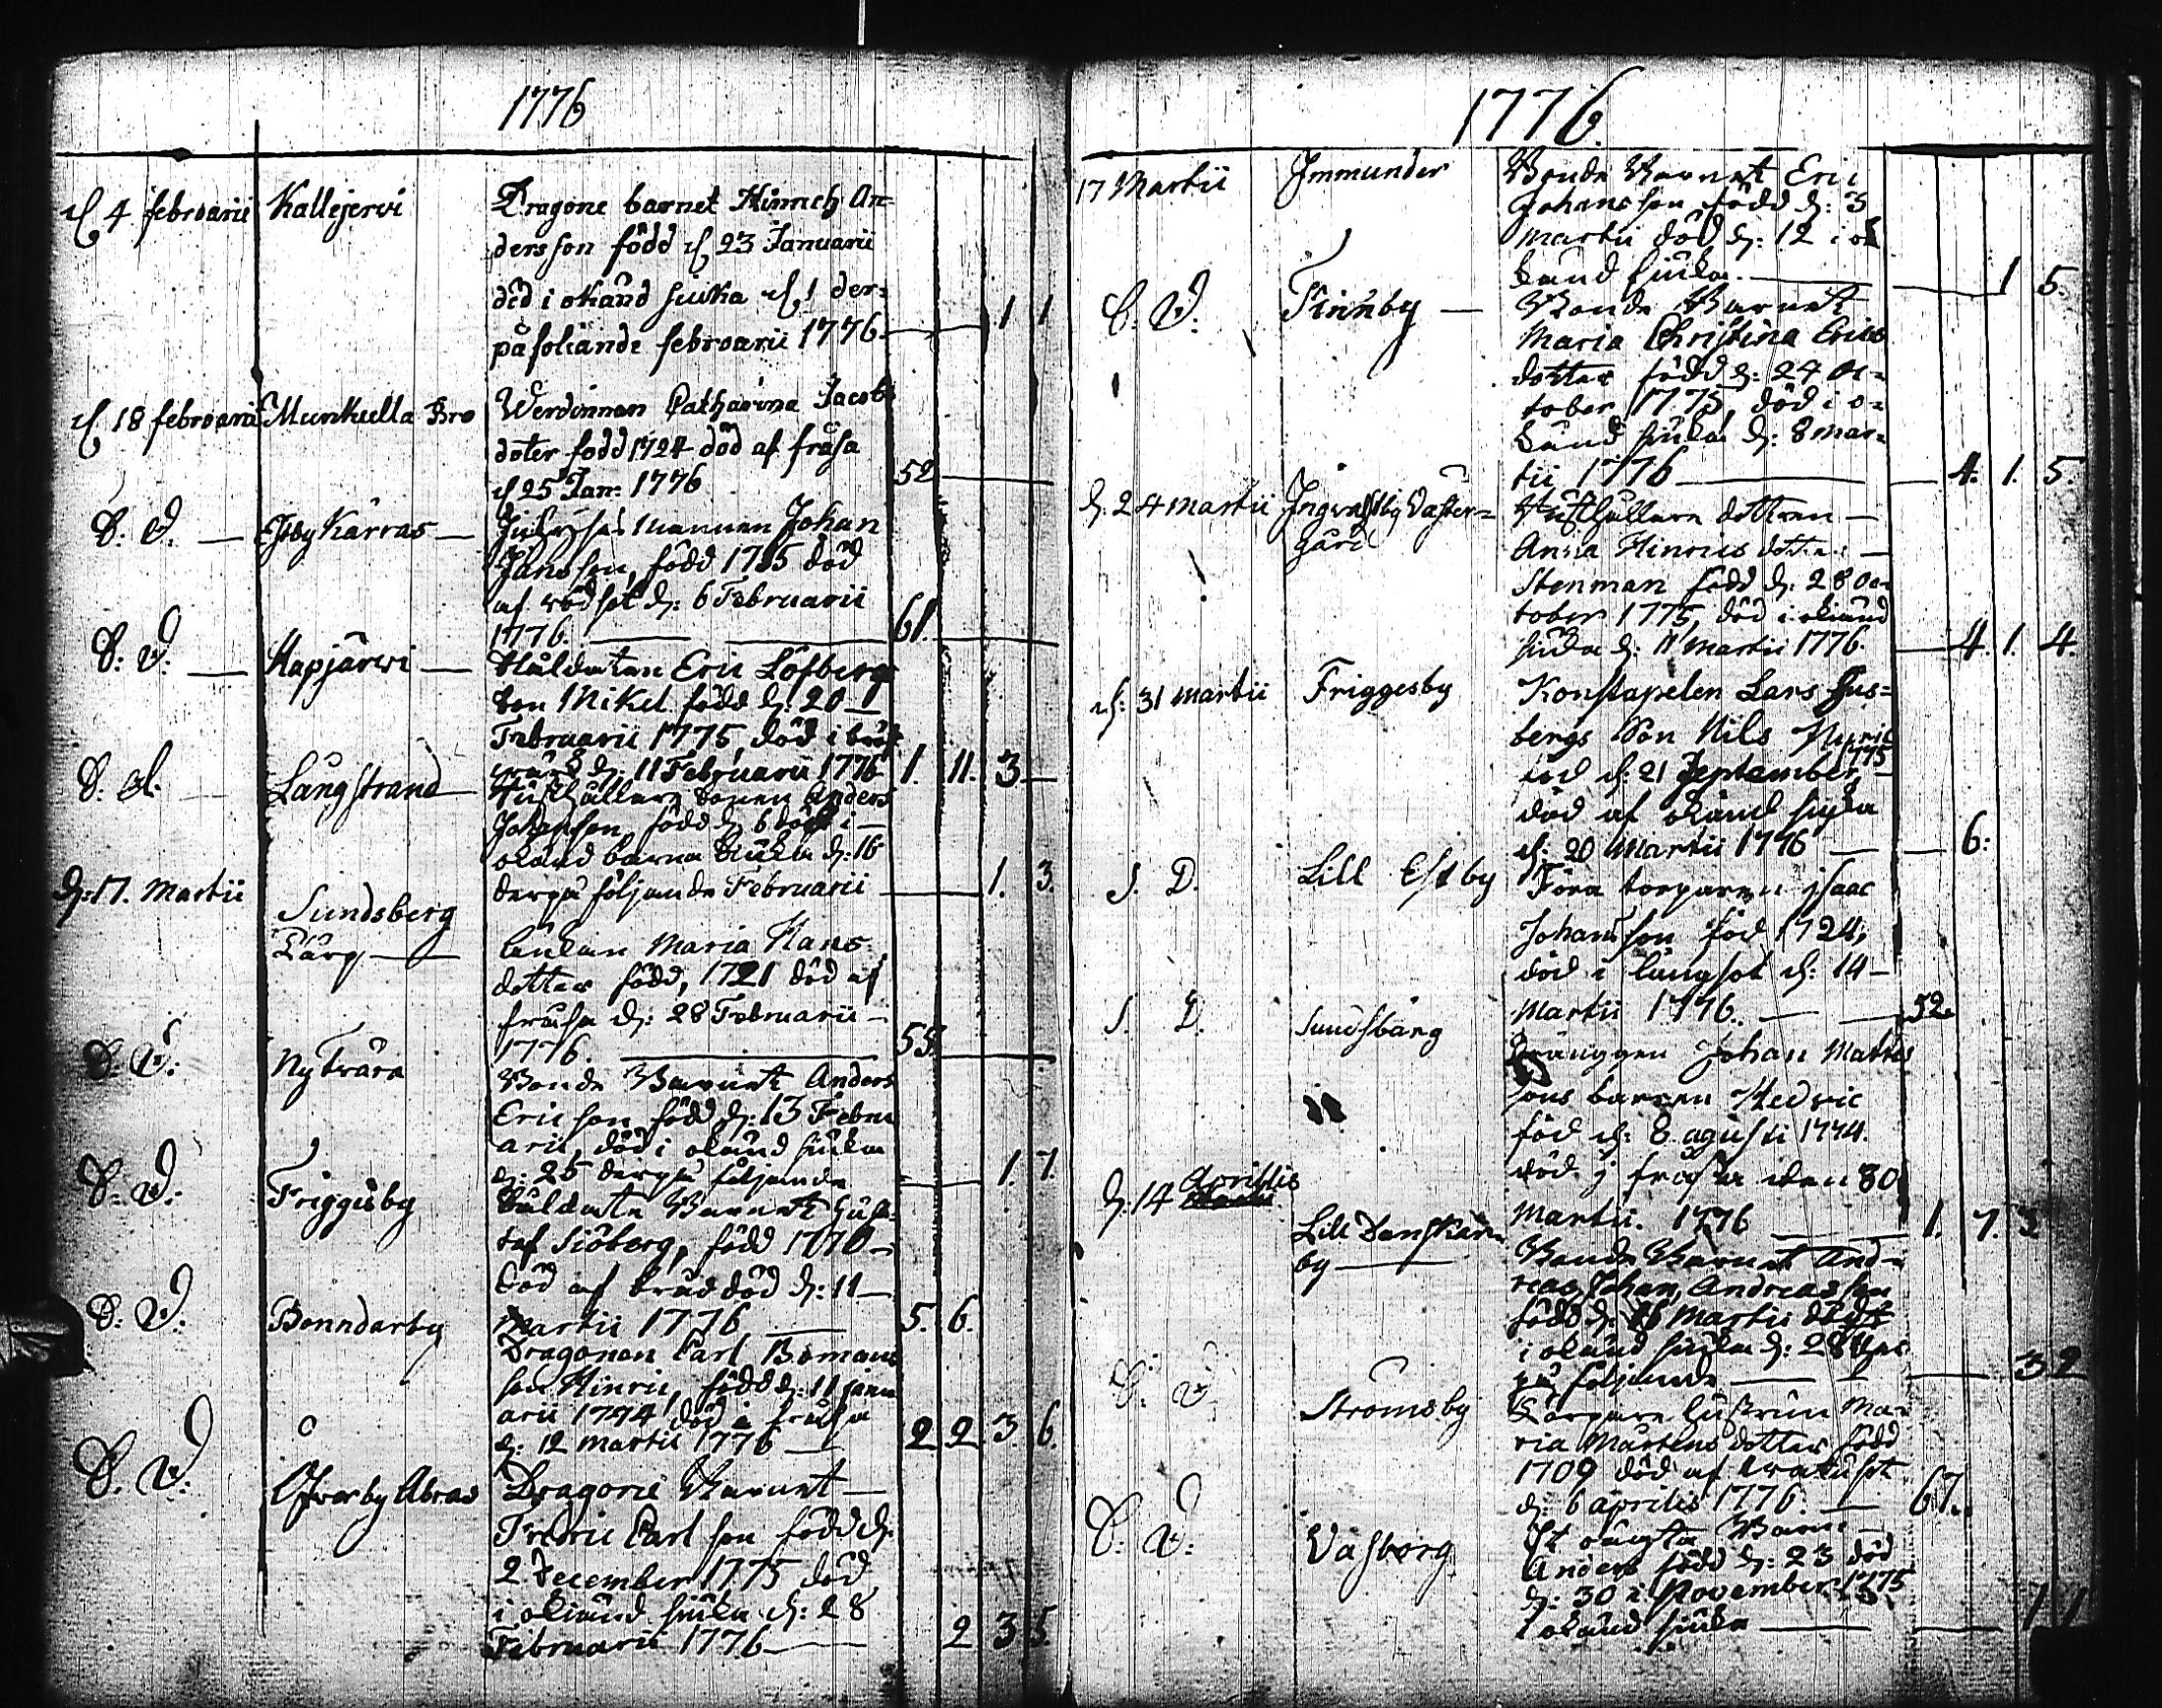 1776
d 4 februarii Kallejervi Dragone barnet Hinrich An=
dersson född d 23 Januarii
död i okänd siuka d 1 der=
påfoliande februarii 1776 1 1
d 18 februarii Munkulla Bro Werdinnan Catharina Jacobs
doter född 1724 död af fråsa
d 25 Jan: 1776 52
D. D. Esby Karras mannen Johan
Jansson, född 1715 död
af rödsot d: 6 Februarii
1776. 61.
D. D. Hapjärwi Soldaten Eric Löfberg
Son Mikel född d: 20
Februarii 1775, död i
d: 11 Februarii 1776 1. 11. 3
D. d. Långstrand Sonen Anders
Johansson, född d 6 död i
okänd barna siuka d: 16
derpå följande Februarii 1. 3.
d: 17. Martii Sundsberg
Torp Enkan Maria Hans
dotter född, 1721 död af
fråsa d: 28 Februarii
1776. 55
D. D. Ny Trära Bonde Barnet Anders
Ericson född d: 13 Febru
arii, död i okänd siuka
d: 25 derpå följande 1. 7.
D. D. Friggisby Soldate Barnet Gus=
taf Siöberg, född 1770
död af bråddöd d: 11
Martii 1776 5. 6.
D. D. Bonndarby Dragonen Carl Bomans
son Hinric, född d: 11 Janu
arii 1774 död i fråsa
d: 12 Martii 1776 2 2 3. 6.
D. D. Öfverby Abras Dragone Barnet
Fredric Carlson född d.
2 December 1775 död
i okiänd siuka d: 28
Februarii 1776 2 3 5.
1776.
17 Martii Immunder Bonde Barnet Eric
Johansson född d: 3
Martii död d: 12 i o
känd siuka. 1 5.
D. D. Finnby Bonde Barnet
Maria Christina Erics
dotter född d: 24 Oc=
tober 1775, död i o=
känd siuka d: 8 Mar=
tii 1776 4. 1. 5.
d. 24 Martii Ingvalsby Väster=
gård dottren
Anna Hinrics dotter
Stenman född d: 28 Oc=
tober 1775, död i okiänd
siuka d: 11 Martii 1776. 4. 1. 4.
d: 31 Martii Friggesby Konstapelen Lars Hus=
bergs Son Nils Hinric
föd d: 21 September, 1775
död af okänd siuka
d: 20 Martii 1776 6:
S. D. Lill Esby torparen isaac
Johansson föd 1724,
död i lungsot d: 14
Martii 1776. 52.
S. D. Sundsbärg Dränggen Johan Matts
sons barnen Hedvic
föd d: 8 agusti 1774.
död j fråssa den 30
Martii. 1776 1. 7. 3
d: 14 Aprillis Lill Danskar
by Bonde Barnet And=
reas Johan, Andreasson
född d: Martii död
i okänd siuka d: 28 der
på följande 3 2
D. D. Strömsby Torpare hustrun Ma=
ria Mårtens dotter född
1709 död af
d: 6 aprilis 1776. 67.
D. D. Vasborg Et oägta Barn
Anders född d: 23 död
d: 30 i November 1775
okänd siuka 1 1